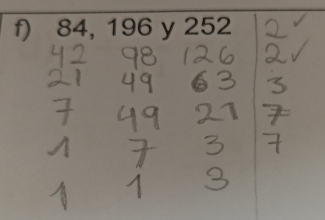 f) 84, 196 y 252 2 ✓
42 98 126 2 ✓
21 49 63 3
7 49 21 7
1 7 3 7
1 1 3